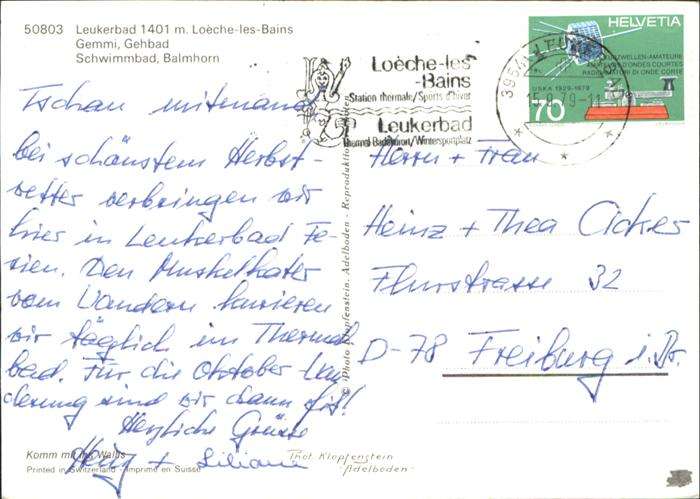 50803 Leukerbad 1401 m. Loèche-les-Bains
Gemmi, Gehbad
Schwimmbad, Balmhorn
Tschau mitenand
bei schönstem Herbst-
wetter verbringen wir
hier in Leukerbad Fe-
rien. Den Muskelkater
vom Wandern kurieren
wir täglich im Thermal
bad. Für die Oktober Wan
derung sind wir dann fit!
Herzliche Grüsse
Heinz + Liliane
Komm mit ins Wallis
Printed in Switzerland - Imprimé en Suisse
Phot Klopfenstein
"Adelboden"
© Photo Klopfenstein, Adelboden - Reproduktion
Loèche-les
-Bains
Station thermale/Sports d'hiver
Leukerbad
Thermal-Badekurort/Wintersportplatz
HELVETIA
KURZWELLEN-AMATEURE
AMATEURS D'ONDES COURTES
RADIOAMATORI DI ONDE CORTE
USKA 1929-1979
70
Herrn + Frau
Heinz + Thea
Flurstrasse 32
D-78 Freiburg i. Br.